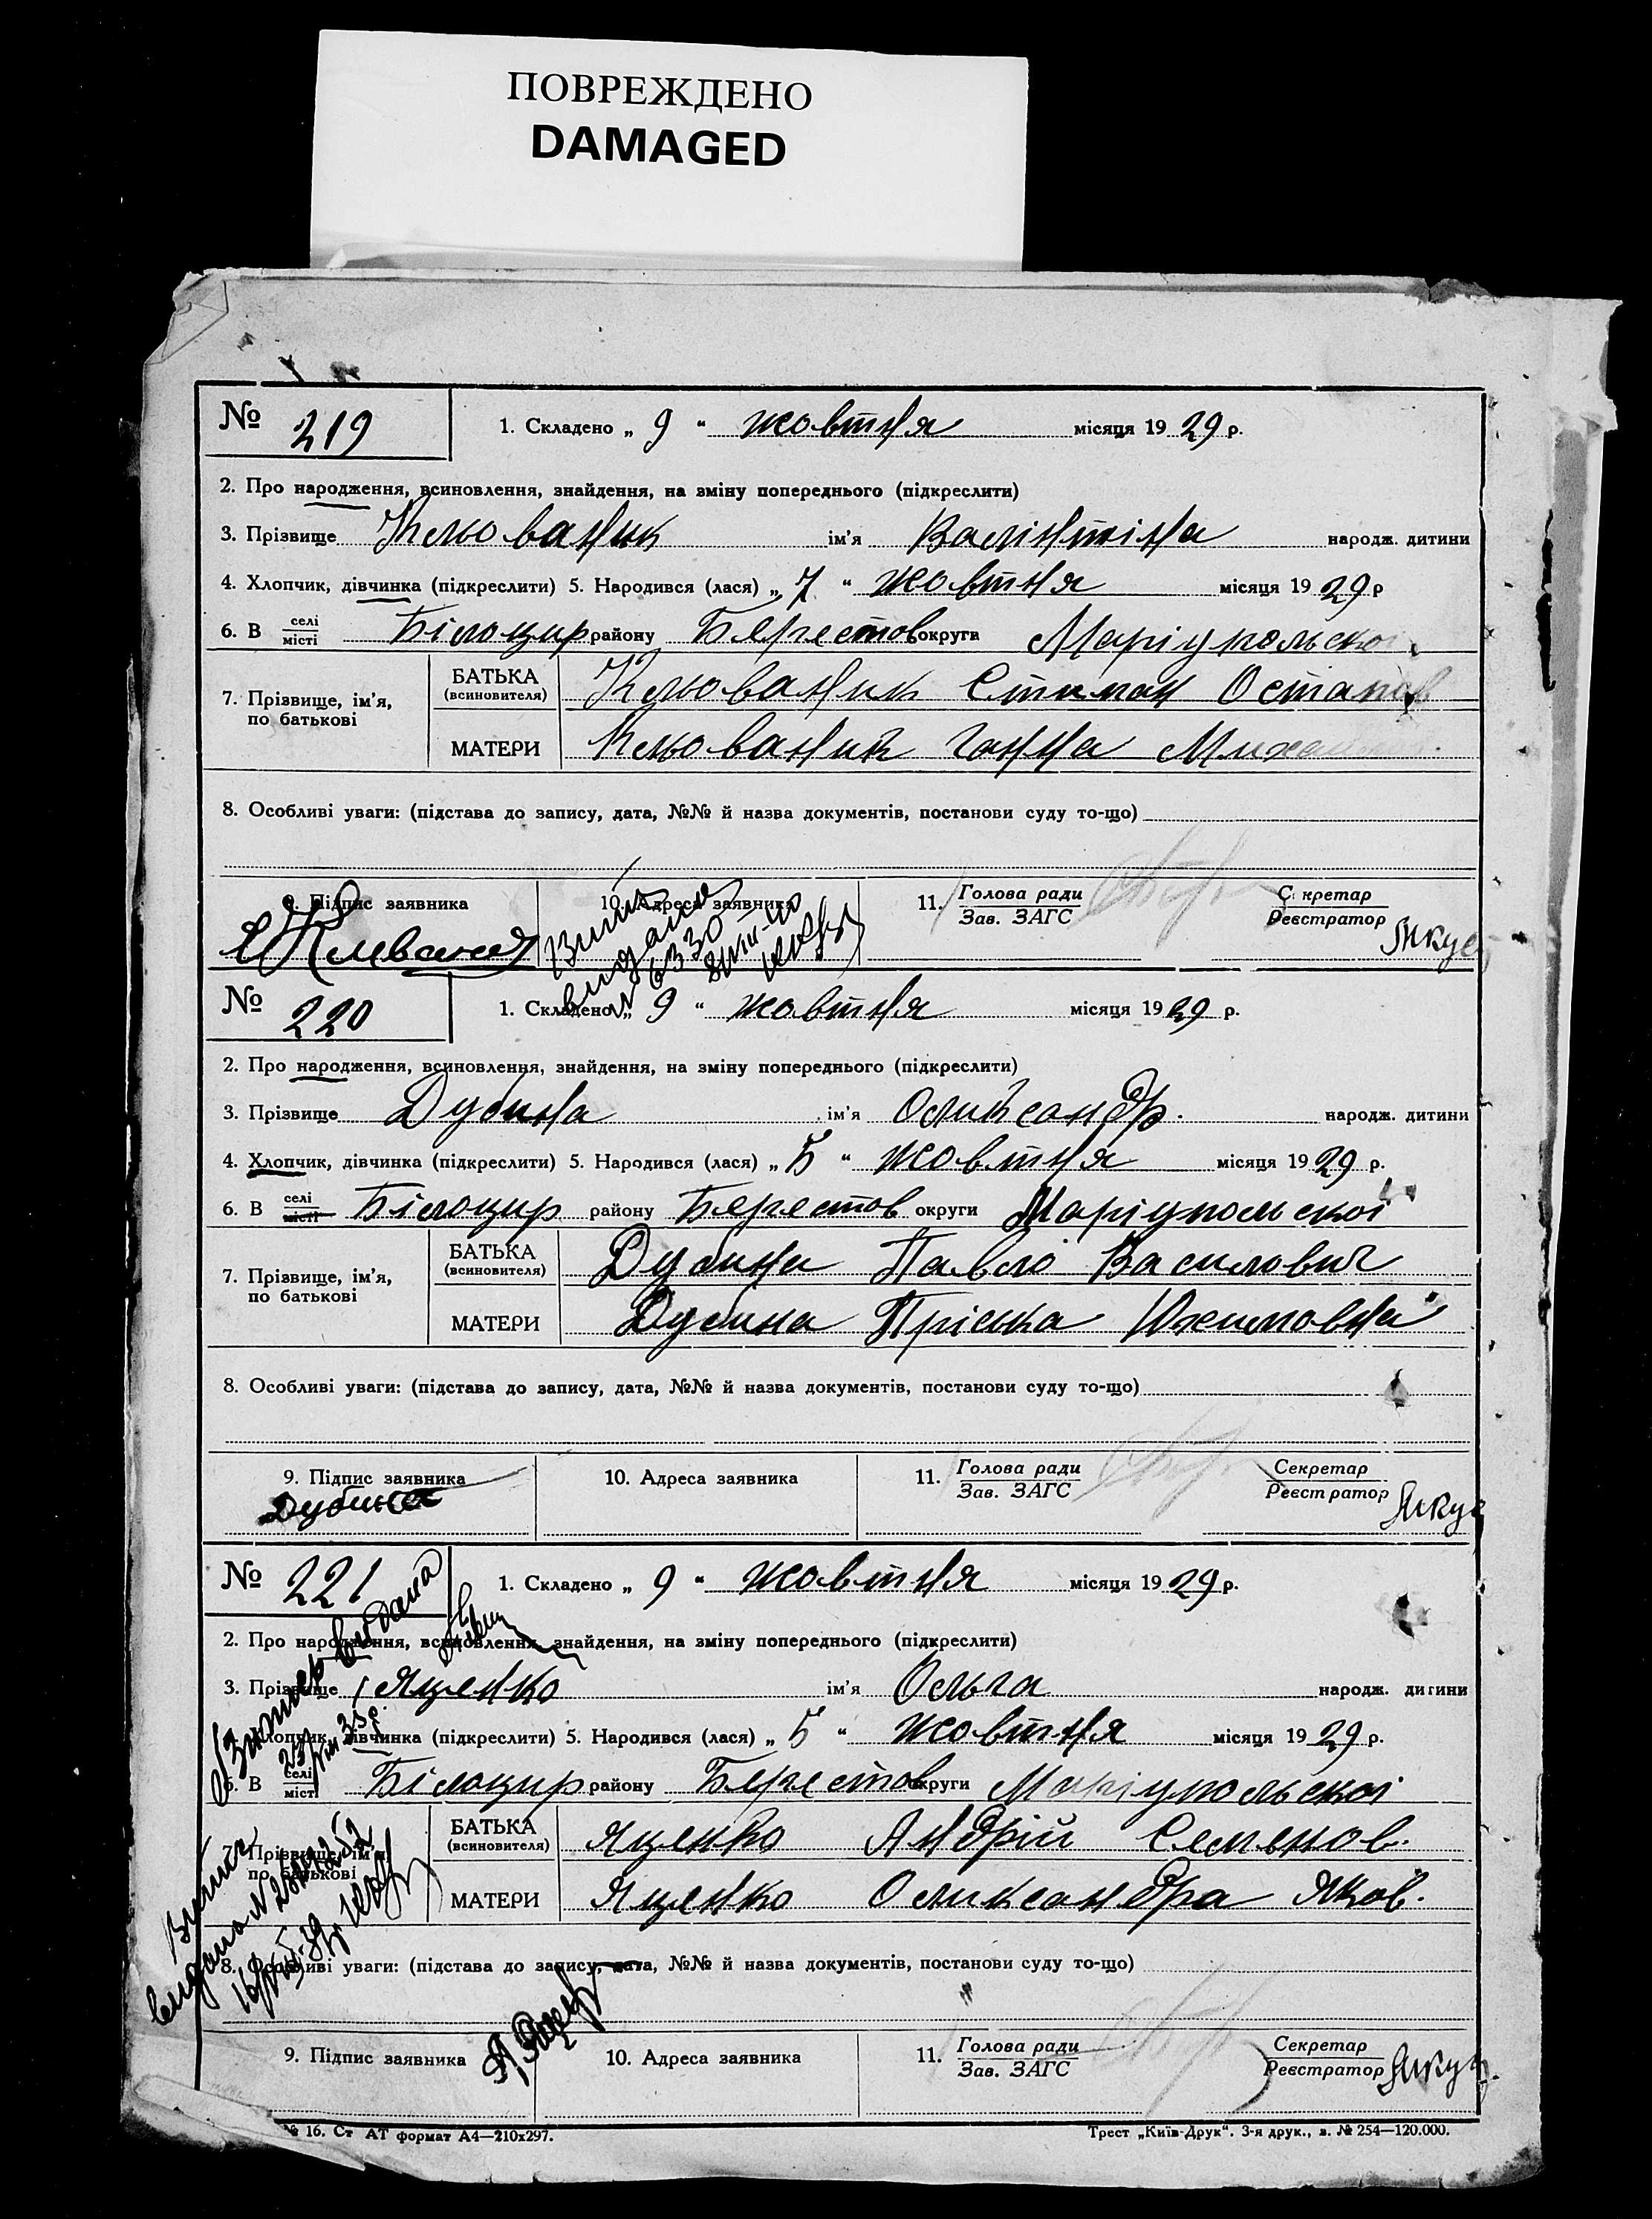 ПОВРЕЖДЕНО
DAMAGED
№ 219 1. Складено „ 9 “ жовтня місяця 1929 р.
2. Про народження, всиновлення, знайдення, на зміну попереднього (підкреслити)
3. Прізвище Кльованик ім'я Валінтіна народж. дитини
4. Хлопчик, дівчинка (підкреслити) 5. Народився (лася) „ 7 “ жовтня місяця 1929 р
6. В селі місті Білоцир району Берестов округи Маріупольскої
7. Прізвище, ім'я, по батькові БАТЬКА (всиновителя) Кльованик Стипан Остапов
МАТЕРИ Кльованик Ганна
8. Особливі уваги: (підстава до запису, дата, №№ й назва документів, постанови суду то-що)
9. Підпис заявника 10. Адреса заявника 11. Голова ради Зав. ЗАГС Секретар Реєстратор
видано
№ 6330
№ 220 1. Складено „ 9 “ жовтня місяця 1929 р.
2. Про народження, всиновлення, знайдення, на зміну попереднього (підкреслити)
3. Прізвище Дубина ім'я Оликсандр. народж. дитини
4. Хлопчик, дівчинка (підкреслити) 5. Народився (лася) „ 5 “ жовтня місяця 1929 р.
6. В селі місті Білоцир району Берестов округи Маріупольскої
7. Прізвище, ім'я, по батькові БАТЬКА (всиновителя) Дубина Павло Василович
МАТЕРИ Дубина Пріська Юхимовна
8. Особливі уваги: (підстава до запису, дата, №№ й назва документів, постанови суду то-що)
9. Підпис заявника 10. Адреса заявника 11. Голова ради Зав. ЗАГС Секретар Реєстратор
Дубина
№ 221 1. Складено „ 9 “ жовтня місяця 1929 р.
2. Про народження, всиновлення, знайдення, на зміну попереднього (підкреслити)
3. Прізвище Яценко ім'я Ольга народж. дитини
4. Хлопчик, дівчинка (підкреслити) 5. Народився (лася) „ 5 “ жовтня місяця 1929 р.
6. В селі місті Білоцир району Берестов округи Маріупольскої
7. Прізвище, ім'я, по батькові БАТЬКА (всиновителя) Яценко Андрій Семенов.
МАТЕРИ Яценко Оликсандра Яков.
8. Особливі уваги: (підстава до запису, дата, №№ й назва документів, постанови суду то-що)
9. Підпис заявника 10. Адреса заявника 11. Голова ради Зав. ЗАГС Секретар Реєстратор
видана
видано
№ 16. Ст АТ формат А4—210х297. Трест „Київ-Друк“. 3-я друк., з. № 254—120.000.